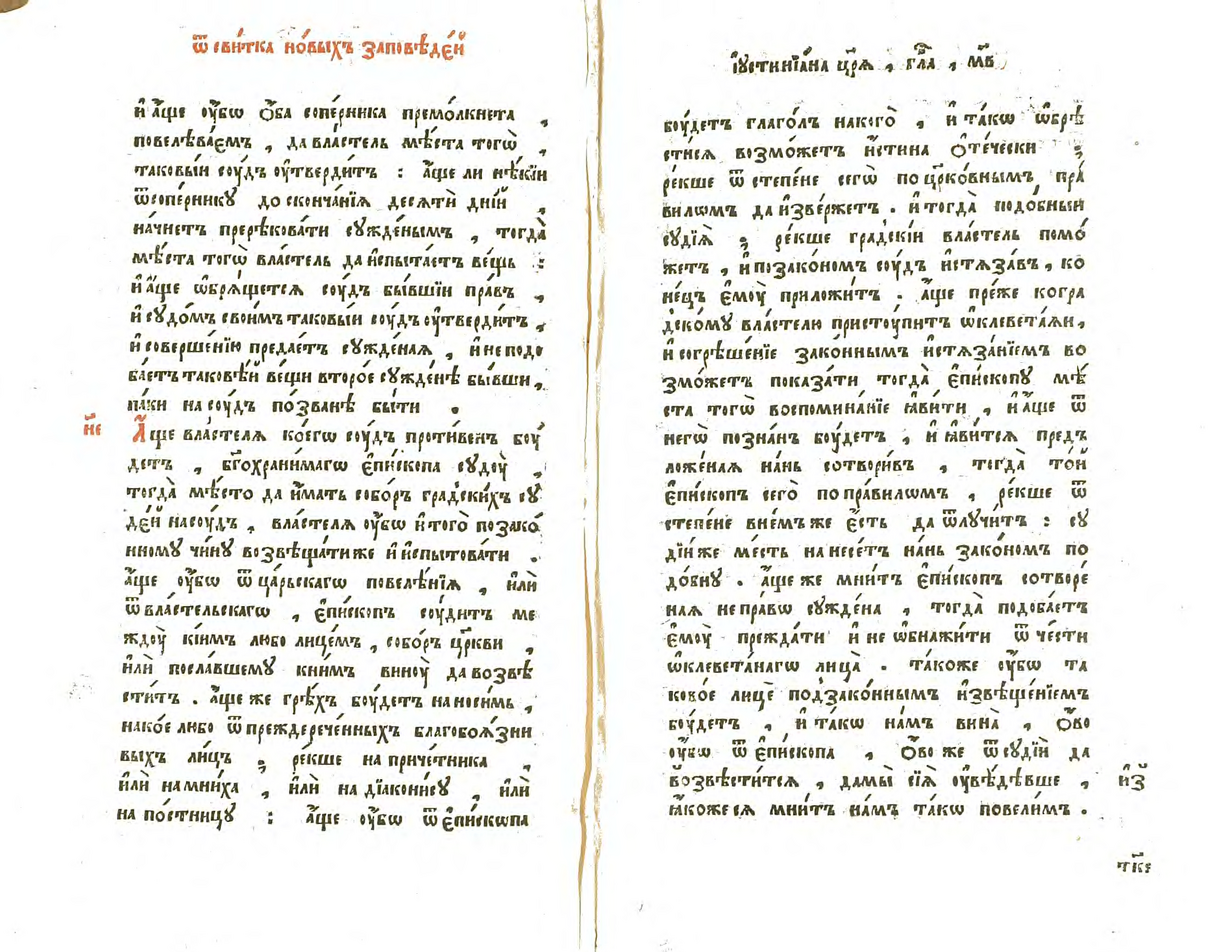 Ѿ сви́тка но́выхъ за́повѣде́й
и҆ а҆́ще ᲂу҆́бѡ ѻ҆́ба сопе́рника премо́лкнета ,
повелѣва́емъ , да вла́стель мѣ́ста тогѡ̀ ,
таковы́й сꙋ́дъ ᲂу҆тверди́тъ : а҆́ще ли нѣ́кїи
ѿсопе́рникꙋ до сконча́нїѧ десѧтѝ дні́й ,
на́чнетъ прерѣкова́ти сꙋжде́нымъ , тогда̀
мѣ́ста тогѡ̀ вла́стель да и҆спыта́етъ ве́щь :
и҆ а҆́ще ѡ҆брѧ́щетсѧ сꙋ́дъ бы́вшїи пра́въ ,
и҆ сꙋдо́мъ свои́мъ таковы́и сꙋ́дъ ᲂу҆тверди́тъ ,
и҆ соверше́нїю преда́етъ сꙋжде́наѧ , и҆ не подо
ба́етъ таковѣ́й ве́щи второ́е сꙋжде́нѣ бы́вши ,
па́ки на сꙋ́дъ по́званѣ бы́ти .
н҃е
А҆́ще вла́стелѧ ко́егѡ сꙋ́дъ проти́венъ бꙋ́
детъ , бг҃охрани́магѡ є҆пи́скопа сꙋдꙋ̀ ,
тогда̀ мѣ́сто да и҆́мать собо́ръ гра́дскихъ сꙋ
де́й на сꙋ́дъ , вла́стелѧ ᲂу҆́бѡ и҆ того̀ по зако́
нномꙋ чи́нꙋ возвѣща́ти же и҆ и҆спытова́ти .
а҆́ще ᲂу҆́бѡ ѿ ца́рьскагѡ повелѣ́нїѧ , и҆лѝ
ѿ вла́стельскагѡ , є҆пи́скопъ сꙋ́дитъ ме
ждꙋ̀ кі́имъ любо лице́мъ , собо́ръ цр҃кви ,
и҆лѝ посла́вшемꙋ книмъ винꙋ̀ да возвѣ
сти́тъ . а҆́ще же грѣ́хъ бꙋ́детъ наноси́мь ,
нако́е либо ѿ преждерече́нныхъ благобоѧ́зни
выхъ ли́цъ ; ре́кше на приче́тника ,
и҆лѝ на мни́ха , и҆лѝ на дїа́конисꙋ , и҆лѝ
на по́стницꙋ : а҆́ще ᲂу҆́бѡ ѿ є҆пи́скѡпа
І҆ꙋстинїа́на цр҃ѧ , гла̑ , м҃в
бꙋ́детъ глаго́лъ на ко́го , и҆ та́кѡ ѡ҆брѣ
сти́сѧ возмо́жетъ и҆́стина ѻ҆те́чески ;
ре́кше ѿ степе́не сегѡ̀ по цр҃ко́внымъ пра́
вилѡмъ да и҆зве́ржетъ . и҆ тогда̀ подо́бныи
сꙋдїѧ̀ ; ре́кше гра́дскїи вла́стель помо́
жетъ , и҆ позако́номъ сꙋ́дъ и҆стѧза́въ , ко
не́цъ є҆мꙋ̀ приложи́тъ . а҆́ще пре́же когра́
дскомꙋ вла́стелю присто́упитъ ѡ҆клевета́ѧи ,
и҆ согрѣше́нїе зако́ннымъ и҆стѧза́нїемъ во
змо́жетъ показа́ти тогда̀ є҆пи́скопꙋ мѣ́
ста тогѡ̀ воспомина́нїе ꙗ҆ви́ти , и҆ а҆́ще ѿ
негѡ̀ позна́нъ бꙋ́детъ , и҆ ꙗ҆ви́тсѧ предъ
ложе́наѧ на́нь сотвори́въ , тогда̀ то́й
є҆пи́скопъ сего̀ по пра́вилѡмъ , ре́кше ѿ
степе́не вне́мъже є҆́сть да ѿлꙋчи́тъ : сꙋ
дїи́же ме́сть нанесе́тъ на́нь зако́номъ по
до́бнꙋ . а҆́ще же мни́тъ є҆пи́скопъ сотворе́
наѧ не пра́вѡ сꙋжде́на , тогда̀ подоба́етъ
є҆мꙋ̀ преждати и҆ не ѡ҆бнажи́ти ѿ че́сти
ѡ҆клевета́нагѡ лица̀ . та́коже ᲂу҆́бѡ та
ково́е лицѐ подзако́ннымъ и҆звѣще́нїемъ
бꙋ́детъ , и҆ та́кѡ на́мъ вина̀ , ѻ҆́во
ᲂу҆́бѡ ѿ є҆пи́скопа , ѻ҆́во же ѿ сꙋдїѝ да
возвѣсти́тсѧ , да мы̀ сїѧ̀ ᲂу҆вѣ́дѣвше ,
ꙗ҆́коже сѧ мни́тъ на́мъ та́кѡ повели́мъ .
и҆з̾
тк҃є